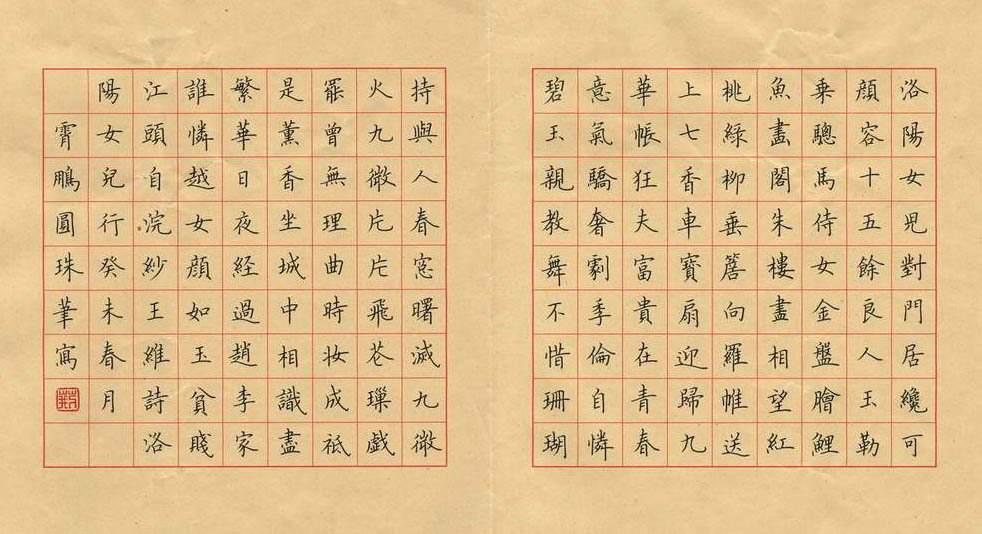 洛陽女兒對門居纔可
顔容十五餘良人玉勒
乘驄馬侍女金盤膾鯉
魚畫閣朱樓盡相望紅
桃綠柳垂簷向羅帷送
上七香車寶扇迎歸九
華帳狂夫富貴在青春
意氣驕奢劇季倫自憐
碧玉親教舞不惜珊瑚
持與人春窓曙滅九微
火九微片片飛花璅戲
罷曾無理曲時妝成祗
是薰香坐城中相識盡
繁華日夜経過趙李家
誰憐越女顔如玉貧賤
江頭自浣紗王維詩洛
陽女兒行癸未春月
霄鵬圓珠筆寫